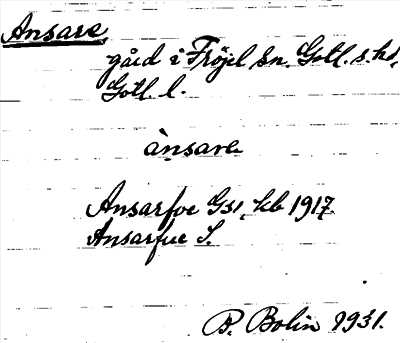 Ansare
gård i Fröjel sn. Gotl. s. hd,
Gotl. l.
ànsare
Ansarfve GS1, kb 1917
Ansarfue S.
B. Bolin 1931.